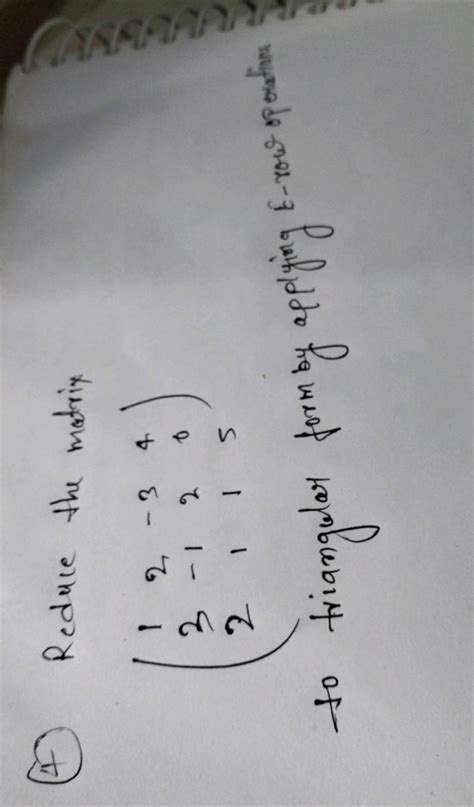 (4) Reduce the matrix
1 2 -3 4
3 -1 2 0
2 1 1 5
to triangular form by applying E-row operations